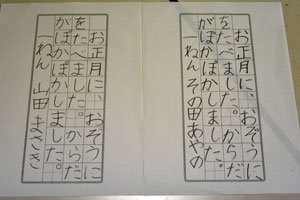 お正月に、おぞうに
をたべました。からだ
がぽかぽかしました。
一ねん その田あやの
お正月に、おぞうに
をたべました。からだ
がぽかぽかしました。
一ねん 山田 まさき